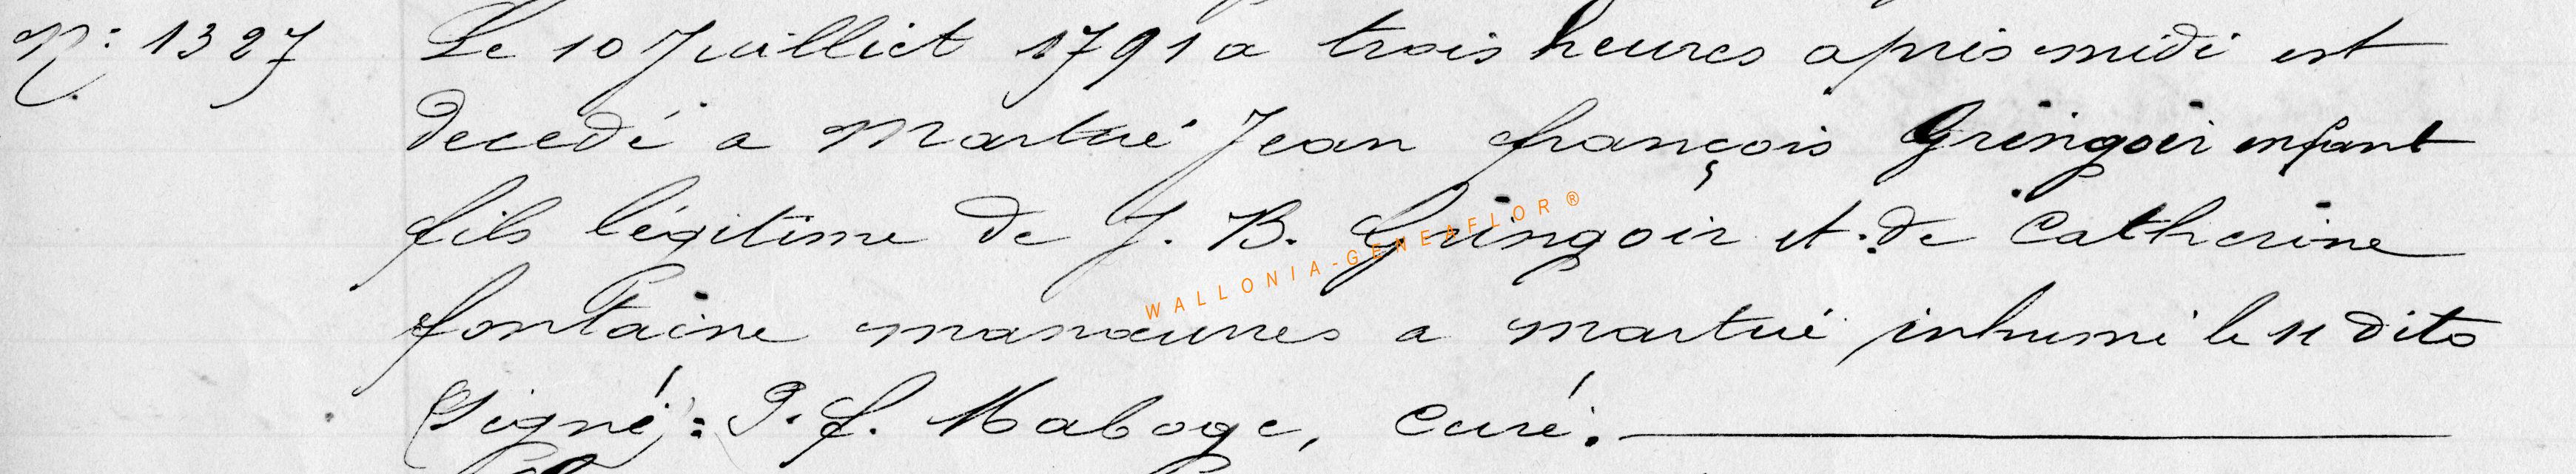 N: 1327 Le 10 Juilliet 1791 a trois heures apris midi est
decedé a Martué Jean françois Gringoir enfant
fils légitime de J. B. Gringoir et de Catherine
fontaine manœuvres a martué inhumé le 11 dito
(Signé): P. f. Maboge, Curé.
WALLONIA-GENEAFLOR®